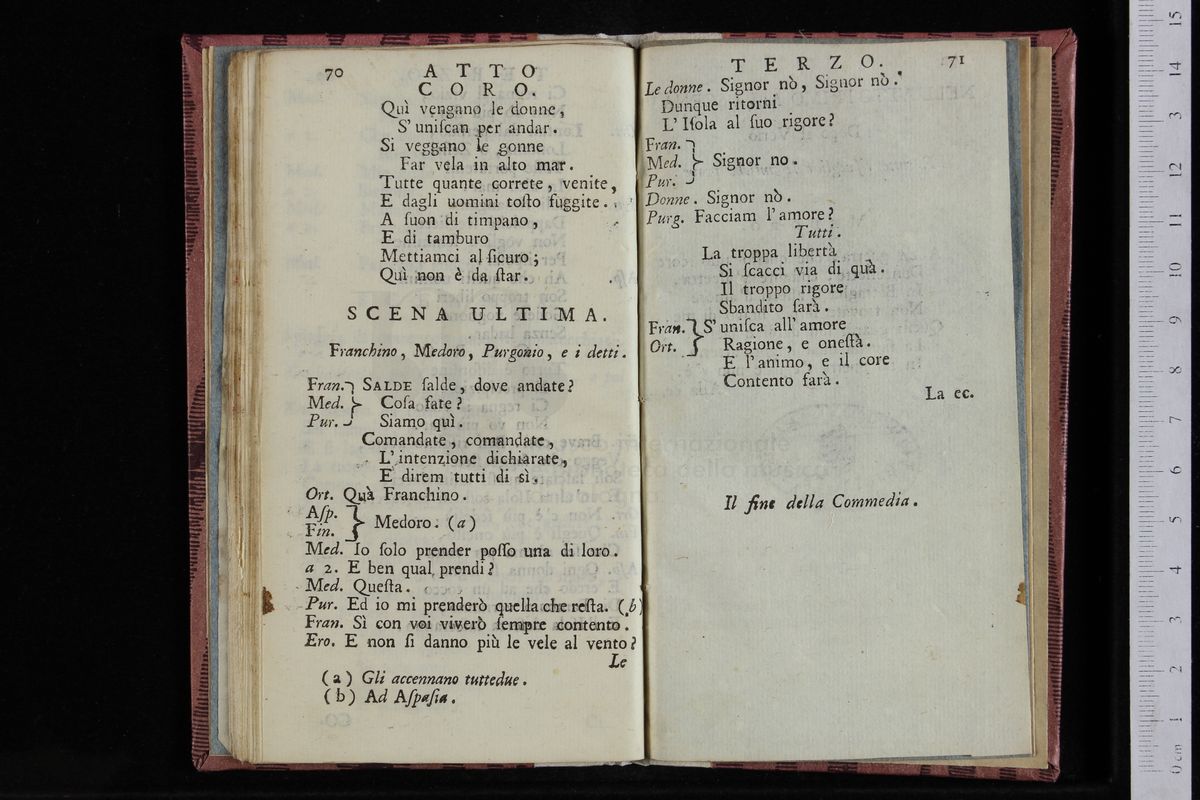 70 ATTO
CORO.
Quì vengano le donne,
S' uniſcan per andar.
Si veggano le gonne
Far vela in alto mar.
Tutte quante correte, venite,
E dagli uomini toſto fuggite.
A ſuon di timpano,
E di tamburo
Mettiamci al ſicuro;
Quì non è da ſtar.
SCENA ULTIMA.
Franchino, Medoro, Purgonio, e i detti.
Fran. SALDE ſalde, dove andate?
Med. Coſa fate?
Pur. Siamo quì.
Comandate, comandate,
L' intenzione dichiarate,
E direm tutti di sì.
Ort. Quà Franchino.
Aſp.
Fin. } Medoro. (a)
Med. Io ſolo prender poſſo una di loro.
a 2. E ben qual prendi?
Med. Queſta.
Pur. Ed io mi prenderò quella che reſta. (b)
Fran. Sì con voi viverò ſempre contento.
Ero. E non ſi danno più le vele al vento?
Le
(a) Gli accennano tuttedue.
(b) Ad Aſpaſia.
TERZO. 71
Le donne. Signor nò, Signor nò.
Dunque ritorni
L' Iſola al ſuo rigore?
Fran.
Med. } Signor no.
Pur.
Donne. Signor nò.
Purg. Facciam l' amore?
Tutti.
La troppa libertà
Si ſcacci via di quà.
Il troppo rigore
Sbandito ſarà.
Fran. } S' uniſca all' amore
Ort. } Ragione, e oneſtà.
E l' animo, e il core
Contento farà.
La ec.
Il fine della Commedia.